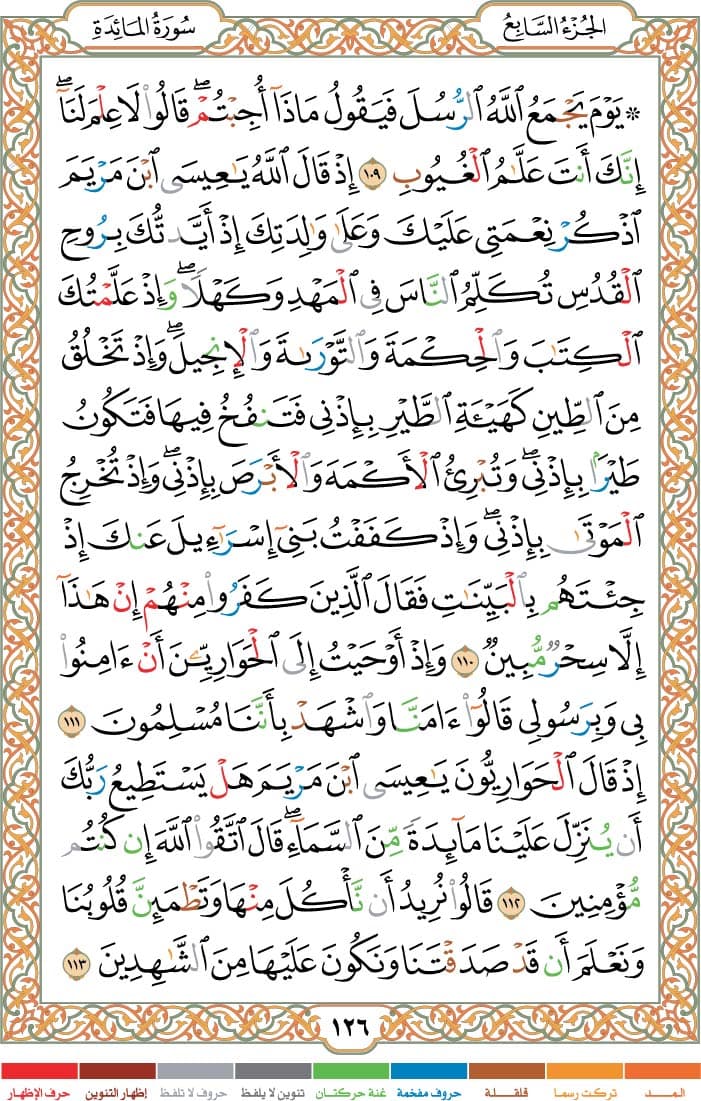 الجزء السابع
سورة المائدة
۞ يَوْمَ يَجْمَعُ ٱللَّهُ ٱلرُّسُلَ فَيَقُولُ مَاذَآ أُجِبْتُمْ ۖ قَالُوا۟ لَا عِلْمَ لَنَآ ۖ
إِنَّكَ أَنتَ عَلَّٰمُ ٱلْغُيُوبِ ١٠٩ إِذْ قَالَ ٱللَّهُ يَٰعِيسَى ٱبْنَ مَرْيَمَ
ٱذْكُرْ نِعْمَتِى عَلَيْكَ وَعَلَىٰ وَٰلِدَتِكَ إِذْ أَيَّدتُّكَ بِرُوحِ
ٱلْقُدُسِ تُكَلِّمُ ٱلنَّاسَ فِى ٱلْمَهْدِ وَكَهْلًا ۖ وَإِذْ عَلَّمْتُكَ
ٱلْكِتَٰبَ وَٱلْحِكْمَةَ وَٱلتَّوْرَىٰةَ وَٱلْإِنجِيلَ ۖ وَإِذْ تَخْلُقُ
مِنَ ٱلطِّينِ كَهَيْـَٔةِ ٱلطَّيْرِ بِإِذْنِى فَتَنفُخُ فِيهَا فَتَكُونُ
طَيْرًۢا بِإِذْنِى ۖ وَتُبْرِئُ ٱلْأَكْمَهَ وَٱلْأَبْرَصَ بِإِذْنِى ۖ وَإِذْ تُخْرِجُ
ٱلْمَوْتَىٰ بِإِذْنِى ۖ وَإِذْ كَفَفْتُ بَنِىٓ إِسْرَٰٓءِيلَ عَنكَ إِذْ
جِئْتَهُم بِٱلْبَيِّنَٰتِ فَقَالَ ٱلَّذِينَ كَفَرُوا۟ مِنْهُمْ إِنْ هَٰذَآ
إِلَّا سِحْرٌ مُّبِينٌ ١١٠ وَإِذْ أَوْحَيْتُ إِلَى ٱلْحَوَارِيِّـۧنَ أَنْ ءَامِنُوا۟
بِى وَبِرَسُولِى قَالُوٓا۟ ءَامَنَّا وَٱشْهَدْ بِأَنَّنَا مُسْلِمُونَ ١١١
إِذْ قَالَ ٱلْحَوَارِيُّونَ يَٰعِيسَى ٱبْنَ مَرْيَمَ هَلْ يَسْتَطِيعُ رَبُّكَ
أَن يُنَزِّلَ عَلَيْنَا مَآئِدَةً مِّنَ ٱلسَّمَآءِ ۖ قَالَ ٱتَّقُوا۟ ٱللَّهَ إِن كُنتُم
مُّؤْمِنِينَ ١١٢ قَالُوا۟ نُرِيدُ أَن نَّأْكُلَ مِنْهَا وَتَطْمَئِنَّ قُلُوبُنَا
وَنَعْلَمَ أَن قَدْ صَدَقْتَنَا وَنَكُونَ عَلَيْهَا مِنَ ٱلشَّٰهِدِينَ ١١٣
١٢٦
المــد تركت رسما قلقلة حروف مفخمة غنة حركتان تنوين لا يلفظ حروف لا تلفظ إظهار التنوين حرف الإظهار